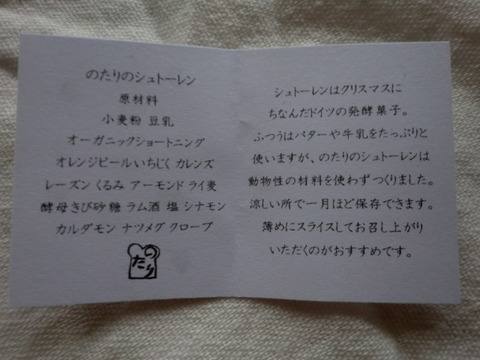 のたりのシュトーレン
原材料
小麦粉 豆乳
オーガニックショートニング
オレンジピール いちじく カレンズ
レーズン くるみ アーモンド ライ麦
酵母 きび砂糖 ラム酒 塩 シナモン
カルダモン ナツメグ クローブ
のたり
シュトーレンはクリスマスに
ちなんだドイツの発酵菓子。
ふつうはバターや牛乳をたっぷりと
使いますが、のたりのシュトーレンは
動物性の材料を使わずつくりました。
涼しい所で一月ほど保存できます。
薄めにスライスしてお召し上がり
いただくのがおすすめです。